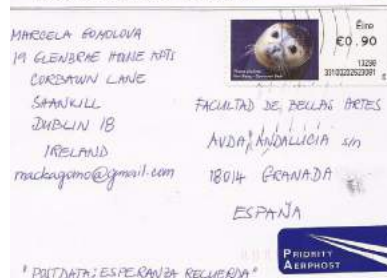 MARCELA
19 GLENBRAE
CORBAWN LANE
SHANKILL
DUBLIN 18
IRELAND
mackagomo@gmail.com
Éire
€0.90
13298
FACULTAD DE BELLAS ARTES
AVDA. ANDALUCIA s/n
18014 GRANADA
ESPAÑA
PRIORITY
AERPHOST
"POSTDATA: ESPERANZA RECUERDA"